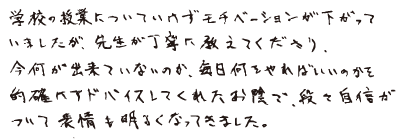 学校の授業についていけずモチベーションが下がって
いましたが、先生が丁寧に教えてくださり、
今何が出来ていないのか、毎日何をやればいいのかを
的確にアドバイスしてくれたお陰で、段々自信が
ついて表情も明るくなってきました。